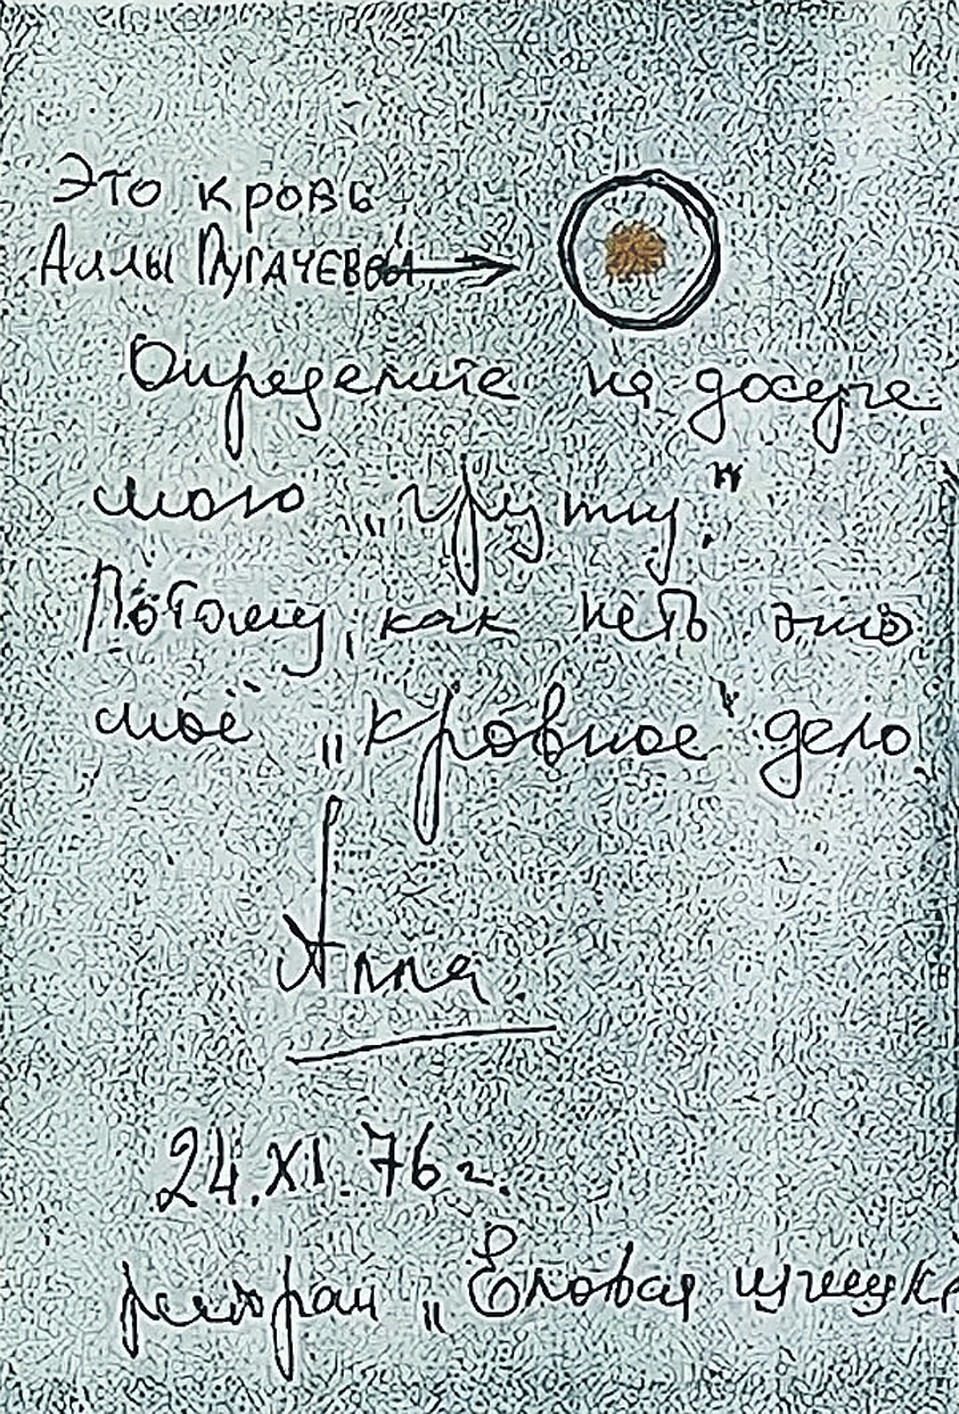 Это кровь
Аллы Пугачевой
Определите на досуге
мою „группу."
Потому, как петь это
моё „кровное" дело
Алла
24.XI.76 г.
ресторан „Еловая шишка